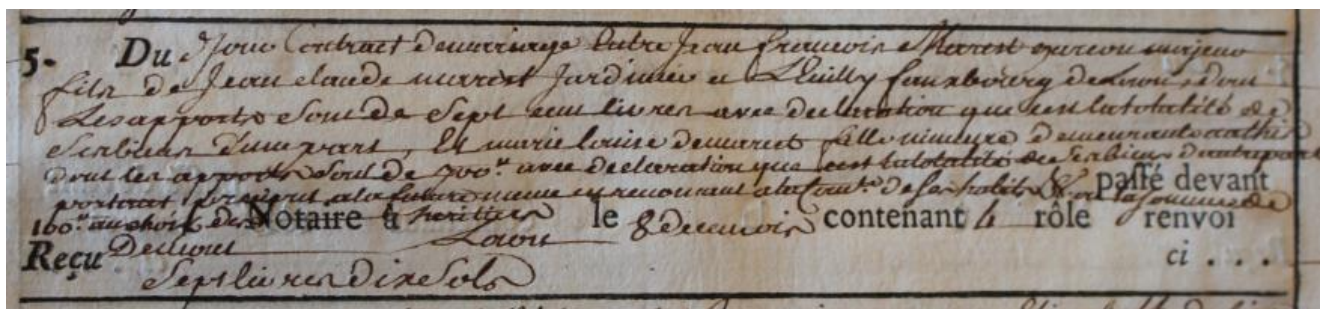 5. Du d. Jour Contract de mariage Entre Jean francois Marest garcon majeur
fils de Jean claude marest Jardinier a Leuilly fauxbourg de Laon, dont
Les apports Sont de Sept cent livres avec declaration que c'est la totalité de
Ses biens d'une part, Et marie louise demarest fille mineure demeurante a athis
dont les apports Sont de 700.lt avec declaration que c'est la totalité de Ses biens d'autre part
portant preciput a la future meme en renoncant a la Com.té de Ses habits & ou la Somme de
passé devant
160.lt au choix des heritiers
Notaire à Laon le 8 decembre contenant 4 rôle renvoi
Reçu Sept livres dix Sols ci . . .